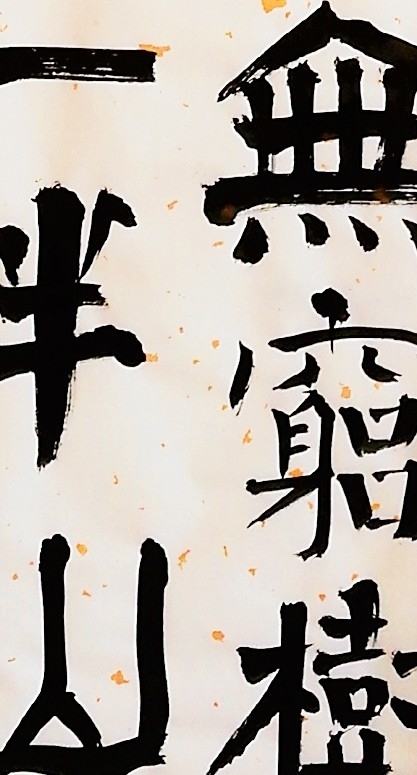 無窮樹
一半山